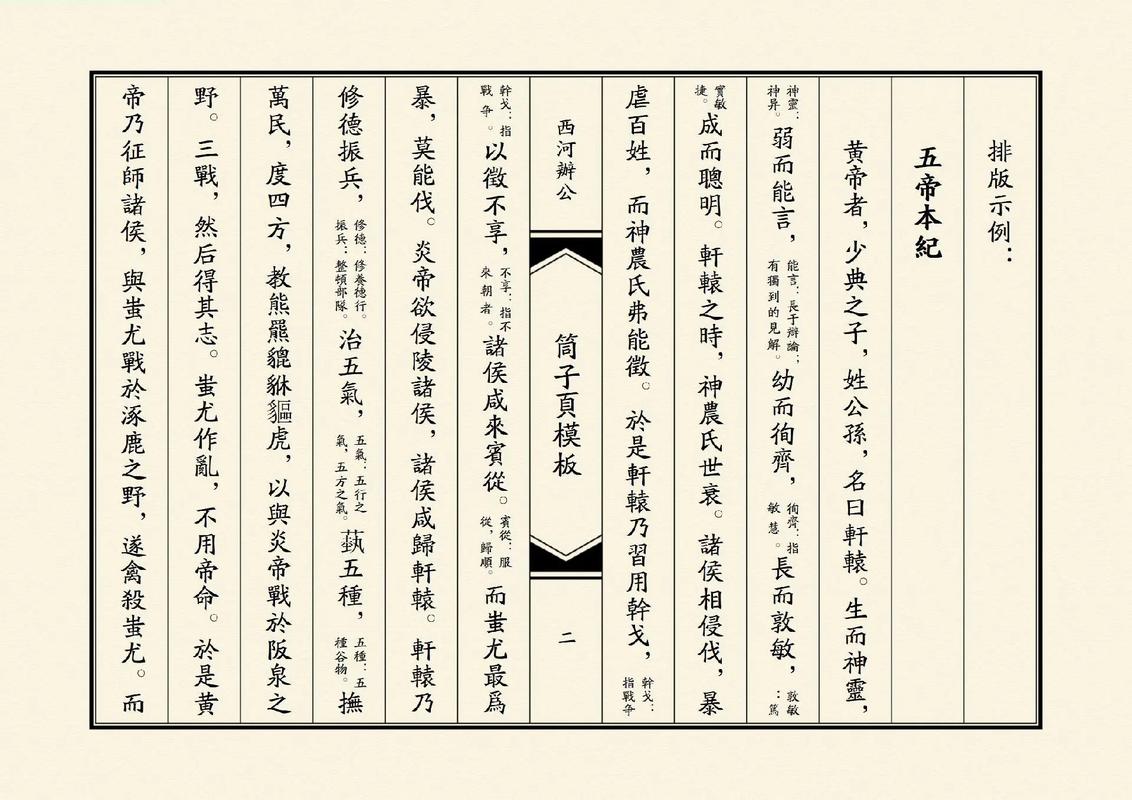 排版示例：
五帝本紀
黄帝者，少典之子，姓公孫，名曰軒轅。生而神靈，
神靈：神异。弱而能言，能言：長于辯論；有獨到的見解。幼而徇齊，徇齊：指敏慧。長而敦敏，敦敏：篤
實敏捷。成而聰明。軒轅之時，神農氏世衰。諸侯相侵伐，暴
虐百姓，而神農氏弗能徵。於是軒轅乃習用幹戈，幹戈：指戰争
西河辦公
筒子頁模板
二
幹戈：指戰争。以徵不享，不享：指不來朝者。諸侯咸來賓從。賓從：服從，歸順。而蚩尤最爲
暴，莫能伐。炎帝欲侵陵諸侯，諸侯咸歸軒轅。軒轅乃
修德振兵，修德：修養德行。振兵：整頓部隊。治五氣，五氣：五行之氣，五方之氣。蓺五種，五種：五種谷物。撫
萬民，度四方，教熊羆貔貅貙虎，以與炎帝戰於阪泉之
野。三戰，然后得其志。蚩尤作亂，不用帝命。於是黄
帝乃征師諸侯，與蚩尤戰於涿鹿之野，遂禽殺蚩尤。而